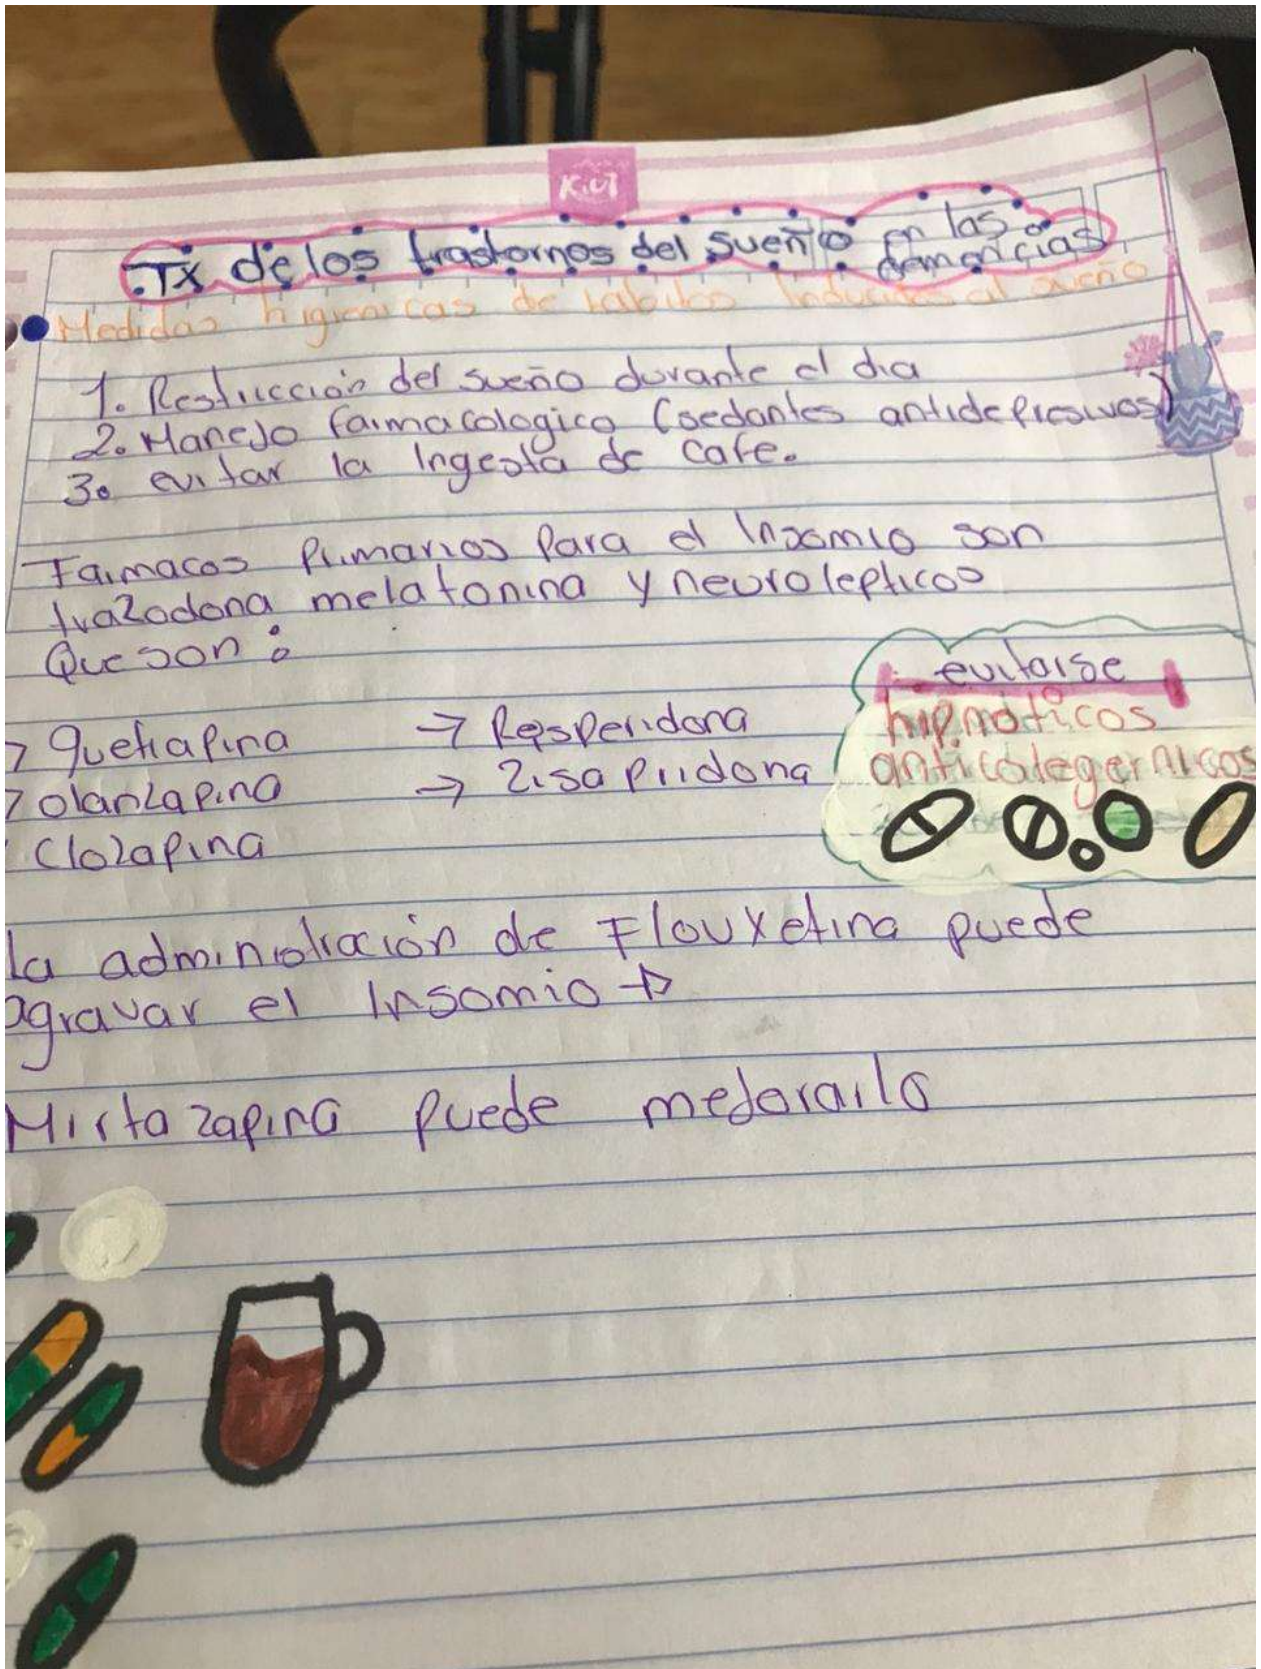 Kiut
.Tx de los trastornos del sueño en las demencias
Medidas higienicas de habitos Inducidas al sueño
1. Restriccion del sueño durante el dia
2. Manejo farmacologico (sedantes antidepresivos)
3. evitar la Ingesta de cafe.
Farmacos Primarios Para el Insomio son
trazodona melatonina y neurolepticos
Que son:
→ quetiapina → Resperidona
→ olanzapina → Zisapridona
Clozapina
evitarse
hipnóticos
anticolegernicos
la administración de Flouxetina puede
agravar el Insomio →
Mirtazapina puede mejorarlo